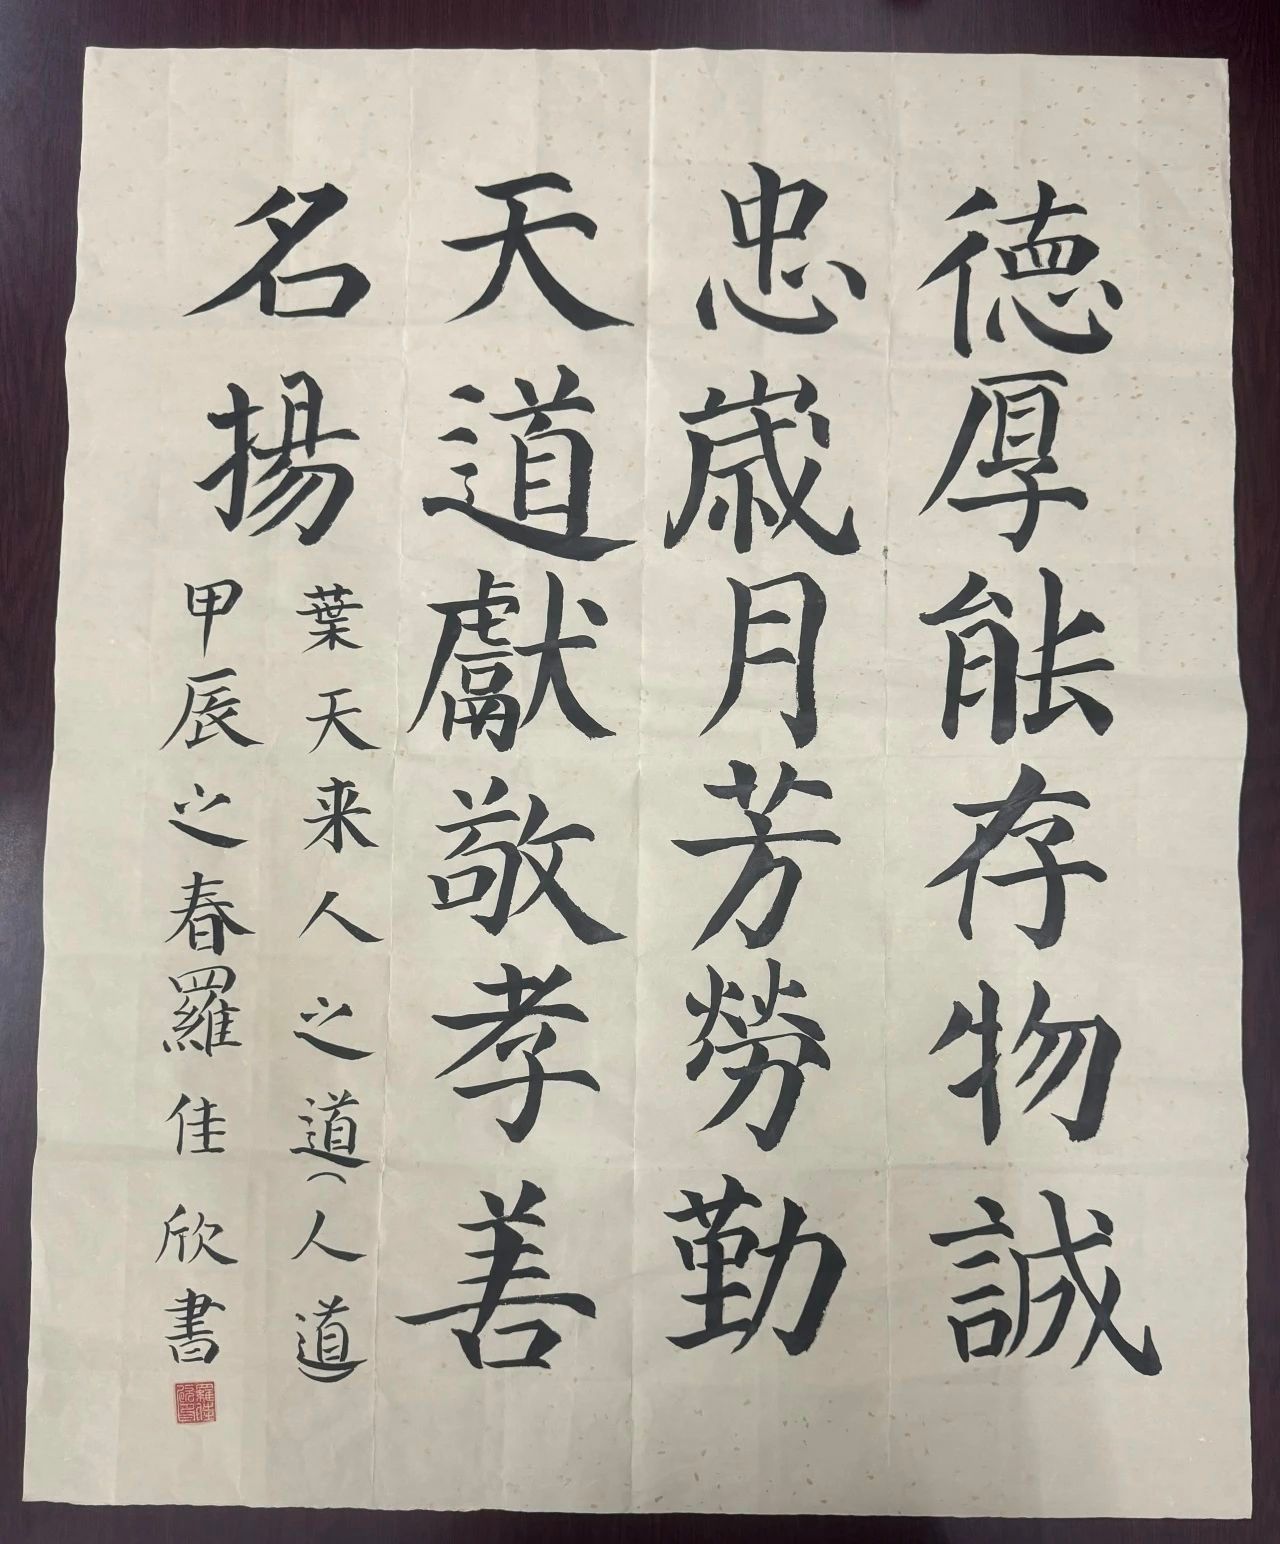 德厚能存物誠
忠歳月芳勞勤
天道獻敬孝善
名揚
葉天来人之道(人道)
甲辰之春羅佳欣書